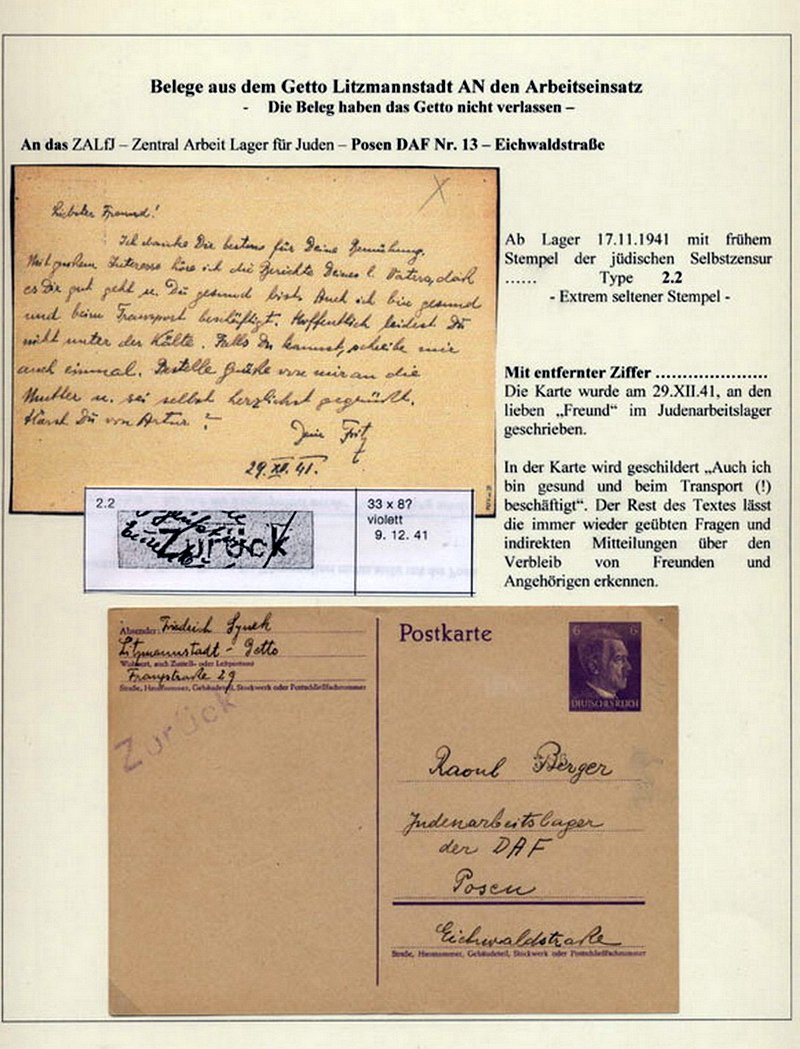 Belege aus dem Getto Litzmannstadt AN den Arbeitseinsatz
- Die Beleg haben das Getto nicht verlassen –
An das ZALfJ – Zentral Arbeit Lager für Juden – Posen DAF Nr. 13 – Eichwaldstraße
Liebster Freund!
Ich danke Dir bestens für Deine Bemühung.
Mit großem Interesse höre ich die Berichte Deines l. Vaters, daß
es Dir gut geht u. Du gesund bist. Auch ich bin gesund
und beim Transport beschäftigt. Hoffentlich leidest Du
nicht unter der Kälte. Falls Du kannst, schreibe mir
auch einmal. Bestelle Grüße von mir an die
Mutter u. sei selbst herzlichst gegrüßt.
Hörst Du von Artur?
Dein Fritz
29.XII.41.
Ab Lager 17.11.1941 mit frühem
Stempel der jüdischen Selbstzensur
...... Type 2.2
- Extrem seltener Stempel -
Mit entfernter Ziffer ....................
Die Karte wurde am 29.XII.41, an den
lieben „Freund“ im Judenarbeitslager
geschrieben.
In der Karte wird geschildert „Auch ich
bin gesund und beim Transport (!)
beschäftigt“. Der Rest des Textes lässt
die immer wieder geübten Fragen und
indirekten Mitteilungen über den
Verbleib von Freunden und
Angehörigen erkennen.
2.2
Zurück
33 x 8?
violett
9. 12. 41
Absender: Friedrich Synek
Litzmannstadt - Getto
Wohnort, auch Zustell- oder Leitpostamt
Franzstraße 29
Straße, Hausnummer, Gebäudeteil, Stockwerk oder Postschließfachnummer
Zurück
Postkarte
6 6
DEUTSCHES REICH
Raoul Berger
Judenarbeitslager
der DAF
Posen
Eichwaldstraße
Straße, Hausnummer, Gebäudeteil, Stockwerk oder Postschließfachnummer